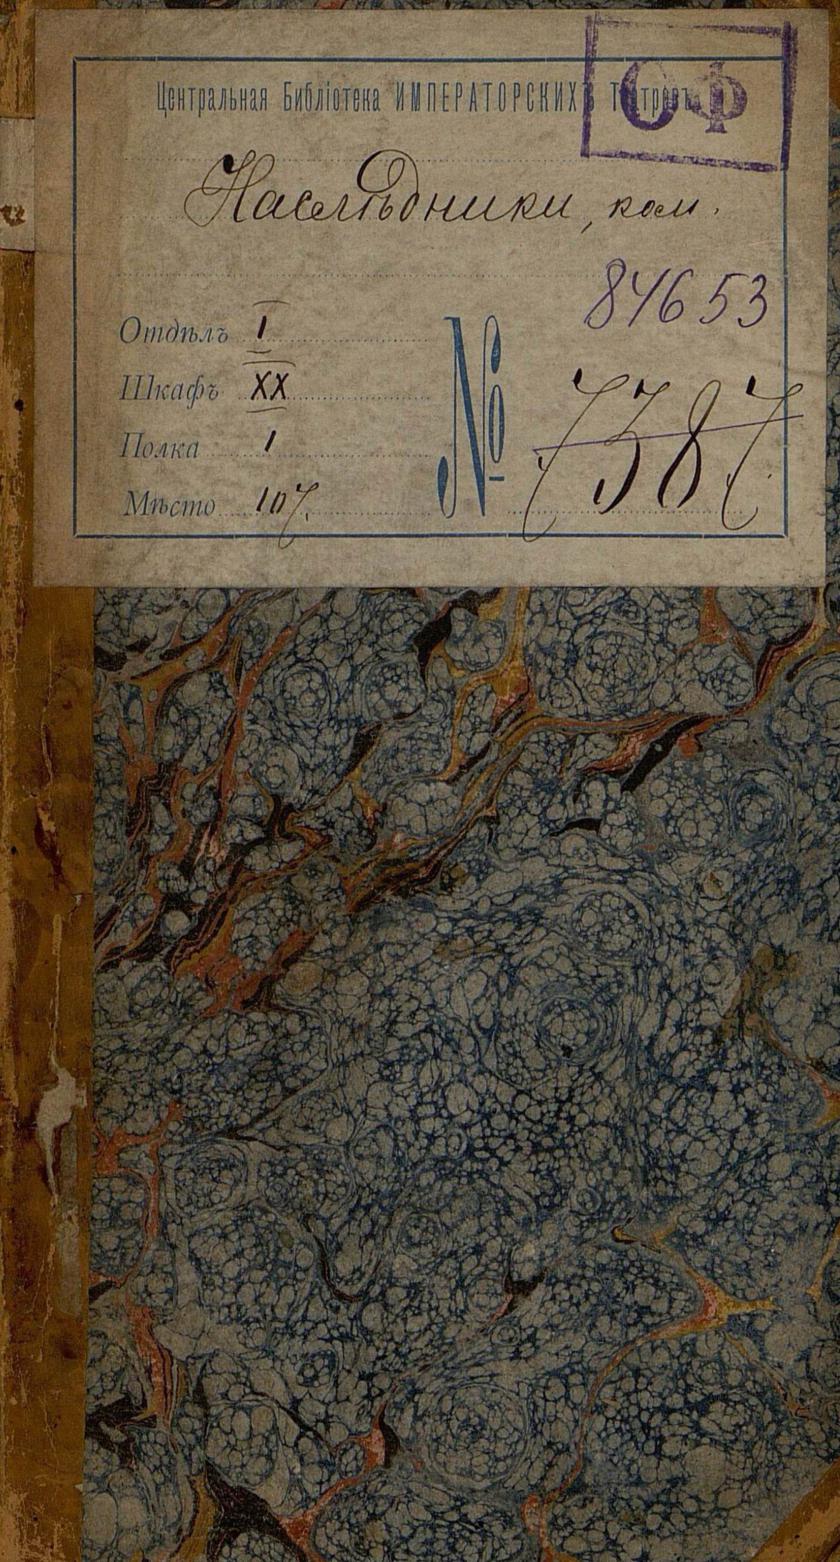 Центральная Библіотека ИМПЕРАТОРСКИХЪ Театровъ
ОФ
Наслѣдники, ком.
84653
Отдѣлъ I
Шкафъ XX
Полка 1
Мѣсто 107.
№ 7387